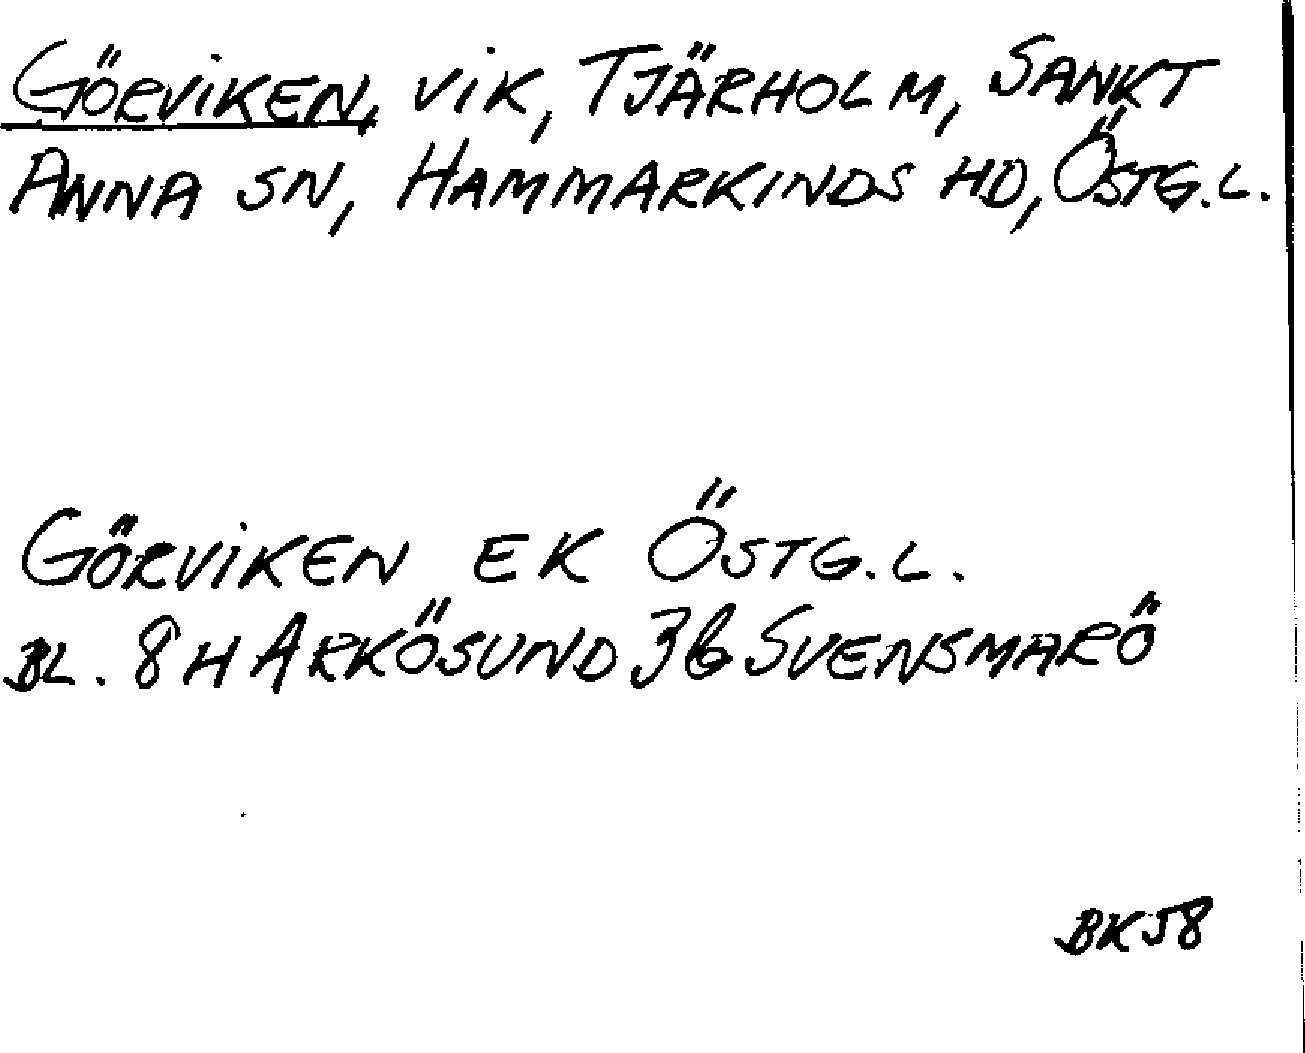 GÖRVIKEN, VIK, TJÄRHOLM, SANKT
ANNA SN, HAMMARKINDS HD, ÖSTG.L.
GÖRVIKEN EK ÖSTG.L.
BL. 8H ARKÖSUND 3b SVENSMARÖ
BK58